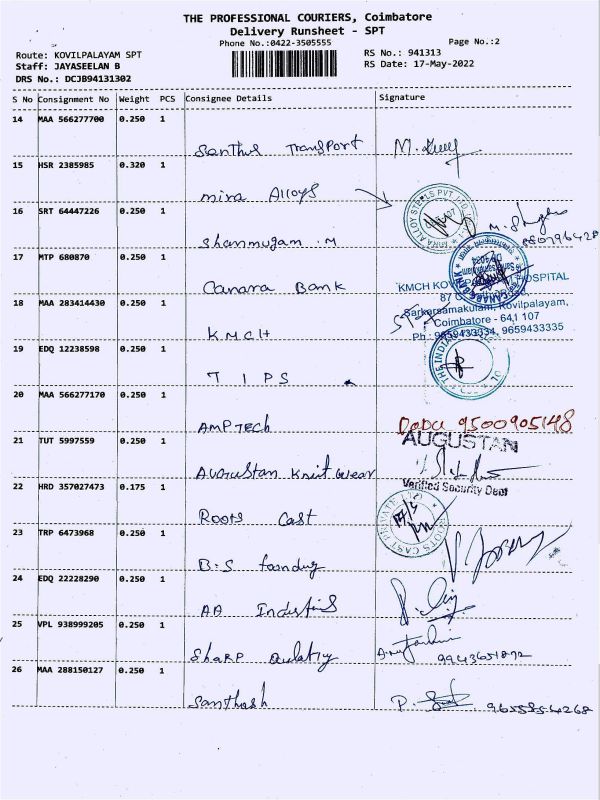 THE PROFESSIONAL COURIERS, Coimbatore
Delivery Runsheet - SPT
Phone No.:0422-3505555
Page No.:2
Route: KOVILPALAYAM SPT
RS No.: 941313
Staff: JAYASEELAN B
RS Date: 17-May-2022
DRS No.: DCJB94131302
S No Consignment No Weight PCS Consignee Details Signature
14 MAA 566277700 0.250 1
Santhus Transport M.
15 HSR 2385985 0.320 1
mira Alloys
MIRA ALLOY STEELS PVT LTD
16 SRT 64447226 0.250 1
Shanmugam .M M.
17 MTP 680870 0.250 1
Canara Bank
CANARA BANK
KMCH HOSPITAL
87
18 MAA 283414430 0.250 1
Sarkarsamakulam, Kovilpalayam,
Coimbatore - 641 107
KMCH
Ph : 9659433334, 9659433335
19 EDQ 12238598 0.250 1
TIPS
THE INDIAN
20 MAA 566277170 0.250 1
AMPTECH 9500905148
21 TUT 5997559 0.250 1
AUGUSTAN
Augustan Knit Wear
Verified Security Dept
22 HRD 357027473 0.175 1
Roots Cast
ROOTS CAST PRIVATE LTD
23 TRP 6473968 0.250 1
B.S foundry
24 EDQ 22228290 0.250 1
AA
25 VPL 938999205 0.250 1
SHARP
26 MAA 288150127 0.250 1
Santhosh P.